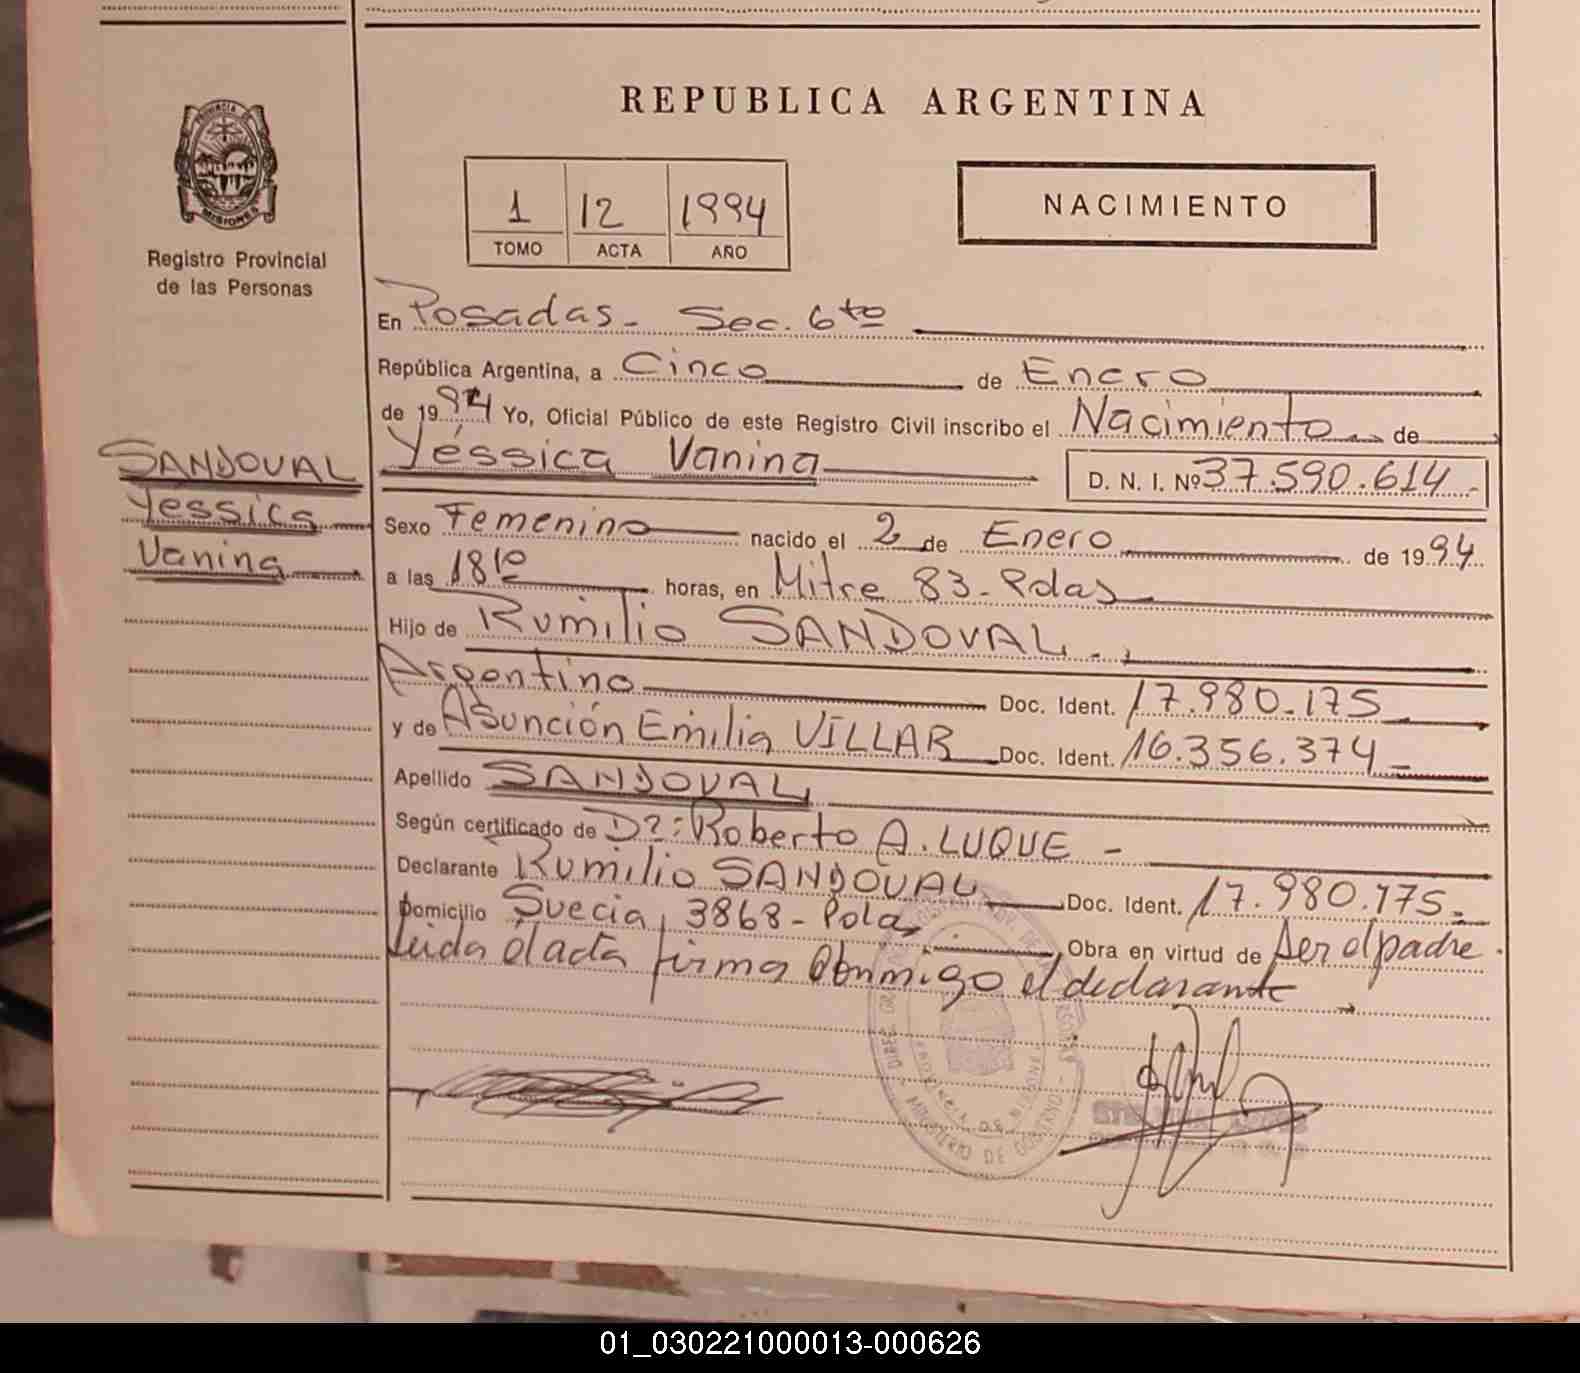 REPUBLICA ARGENTINA
PROVINCIA DE
MISIONES
Registro Provincial
de las Personas
1 12 1994
TOMO ACTA AÑO
NACIMIENTO
En Posadas - Sec. 6ta
República Argentina, a Cinco de Enero
de 1994 Yo, Oficial Público de este Registro Civil inscribo el Nacimiento de
Yéssica Vanina D. N. I. Nº 37.590.614-
SANDOVAL
Yéssica
Vanina
Sexo Femenino nacido el 2 de Enero de 1994
a las 18 10 horas, en Mitre 83 - Pdas
Hijo de Rumilio SANDOVAL - ,
Argentino Doc. Ident. 17.980.175
y de Asunción Emilia VILLAR Doc. Ident. 16.356.374
Apellido SANDOVAL
Según certificado de Dr: Roberto A. LUQUE -
Declarante Rumilio SANDOVAL Doc. Ident. 17.980.175.
Domicilio Suecia, 3868 - Pdas Obra en virtud de Ser el padre
Leida el acta firma Conmigo el declarante
MINISTERIO DE GOBIERNO
01_030221000013-000626